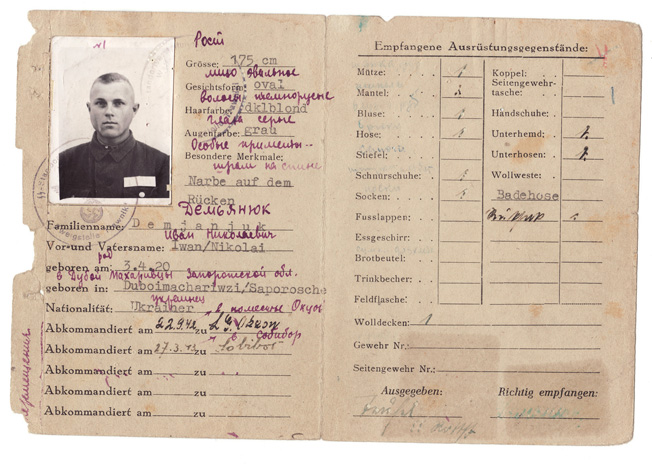 Рост
Grösse: 175 cm
лицо овальное
Gesichtsform: oval
волосы темнорусые
Haarfarbe: dklblond
глаза серые
Augenfarbe: grau
Особые приметы
Besondere Merkmale:
шрам на спине
Narbe auf dem
Rücken
Демьянюк
Familienname: Demjanjuk
Иван Николаевич
Vor-und Vatersname: Iwan/Nikolai
род
geboren am: 3.4.20
в Дубой Махаривцы Запорожской обл.
geboren in: Duboimachariwzi/Saporosche
украинец
Nationalität: Ukrainer
в поместье Окцув
Abkommandiert am 22.9.42 zu L.G. Okzow
в Собибор
Abkommandiert am 27.3.43 zu Sobibor
Abkommandiert am zu
Abkommandiert am zu
Abkommandiert am zu
Empfangene Ausrüstungsgegenstände:
Mütze: 1
Mantel:
Bluse: 1
Hose: 1
Stiefel:
Schnürschuhe: 1
Socken: 1
Fusslappen:
Essgeschirr:
Brotbeutel:
Trinkbecher:
Feldflasche:
Wolldecken: 1
Gewehr Nr.:
Seitengewehr Nr.:
Koppel:
Seitengewehr-
tasche:
Handschuhe:
Unterhemd: 1.
Unterhosen: 1.
Wollweste:
Badehose
Rucksack
Ausgegeben:
Richtig empfangen: